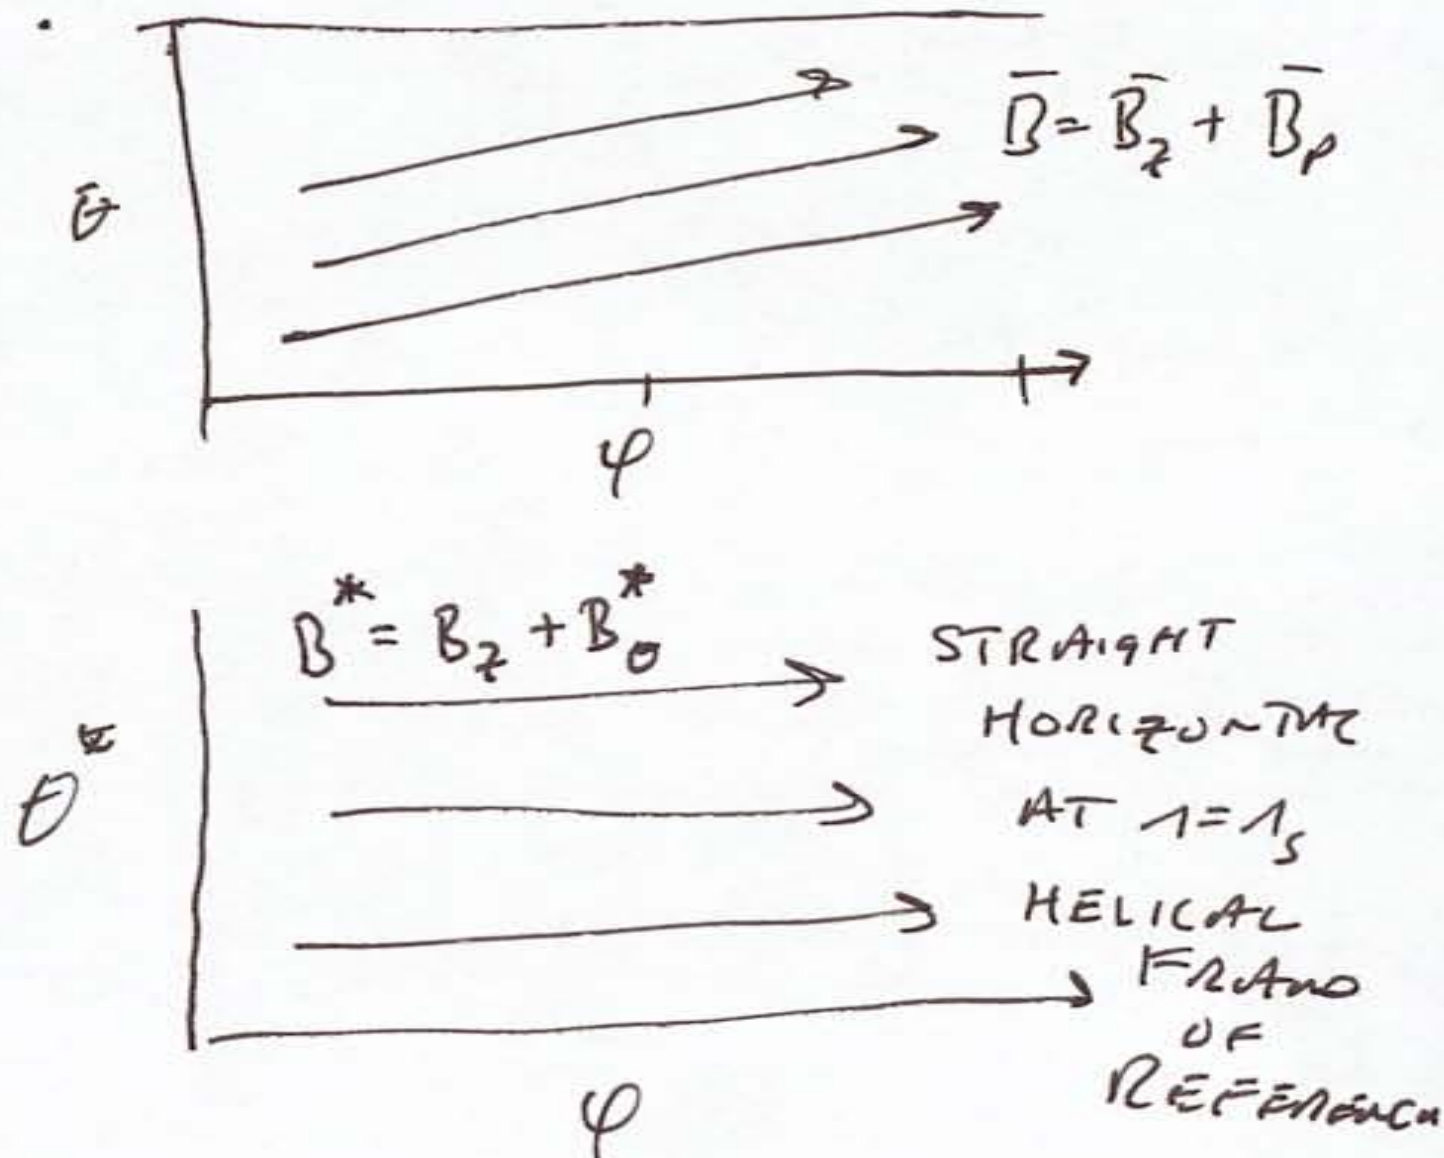 B̄ = B̄_z + B̄_p
θ
φ
B* = B_z + B_θ*
STRAIGHT
HORIZONTAL
θ*
AT r = r_s
HELICAL
FRAME
OF
REFERENCE
φ